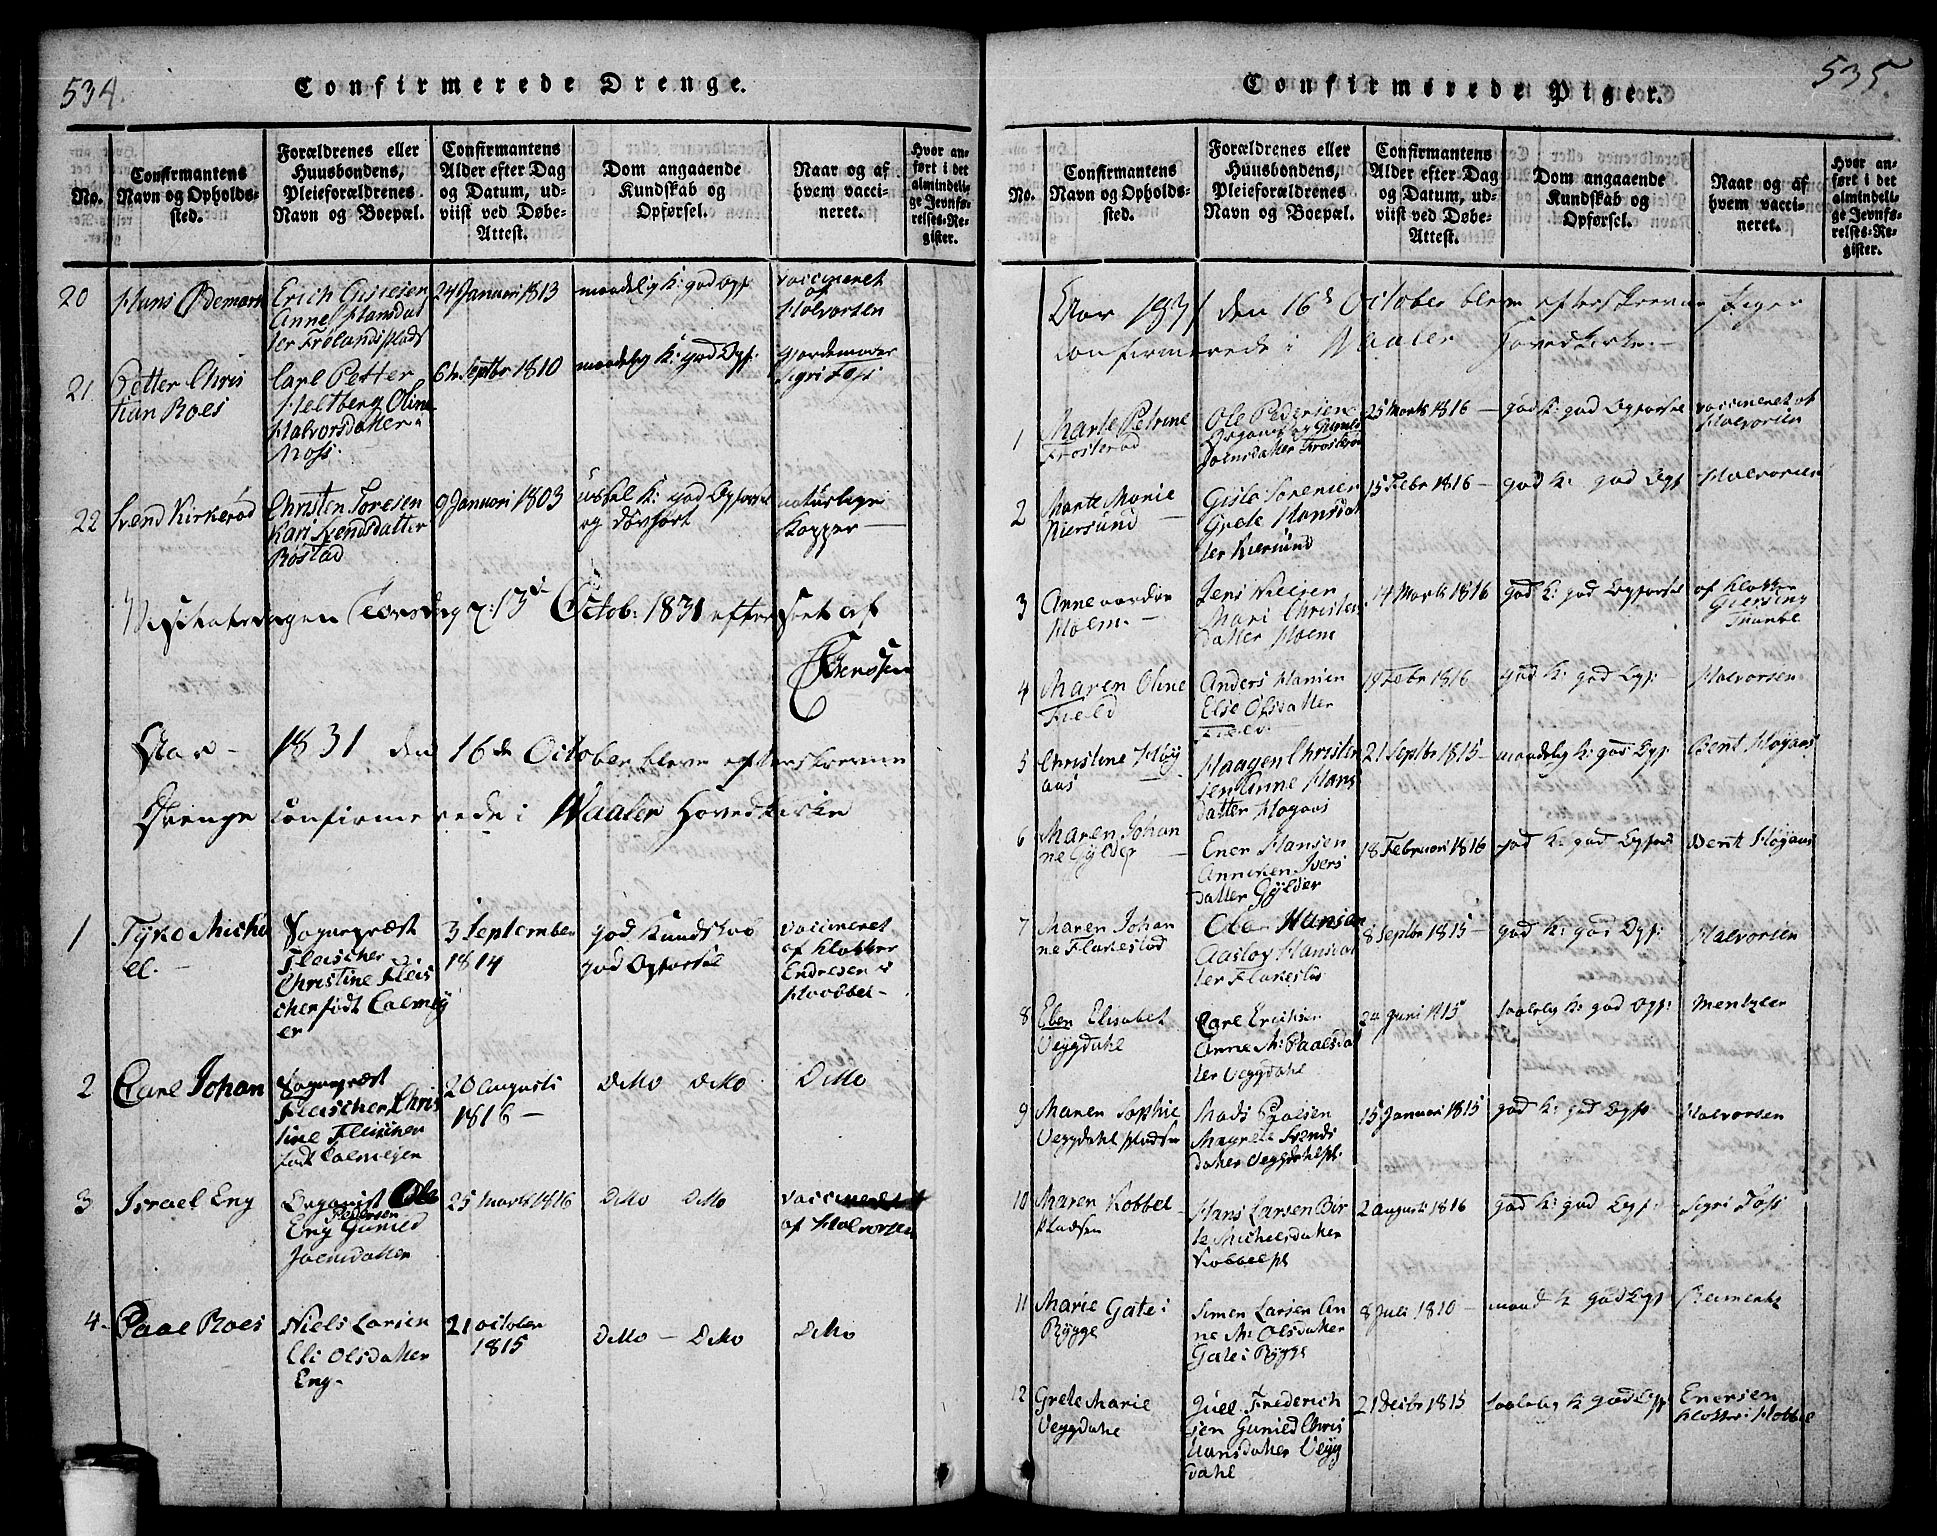 534.
Confirmerede Drenge.
No.
Confirmantens
Navn og Opholds-
sted.
Forældrenes eller
Huusbondens,
Pleieforældrenes
Navn og Boepæl.
Confirmantens
Alder efter Dag
og Datum, ud-
viist ved Døbe-
Attest.
Dom angaaende
Kundskab og
Opførsel.
Naar og af
hvem vacci-
neret.
Hvor an-
ført i det
almindeli-
ge Jevnfø-
relses-Re-
gister.
20
Hans Ødemark
Erich
Anne Hansdat
ter Frølandsplads
24 Januari 1813
maadelig K: god Opf:
vaccineret
af
Halvorsen
21
Petter Chris
tian Roes
Carl Petter
Heltberg Oline
Halvorsdatter
Moss.
6te Septbr 1810
maadelig K: god Opf:
Gjordemoder
Sigri Foss
22
Svend Kirkerød
Christen Toresen
Kari Svendsdatter
Røstad
9 Januari 1803
ussel K: god Opførsel
og døvhørt
naturlige
Kopper
Visitatsdagen Torsdag d: 13de Octob: 1831 efterseet af
Aar 1831 den 16de October bleve efterskrevne
Drenge confirmerede i Waaler Hovedkirke
1
Tyko Micha
el.
Sogneprest
Fleischer
Christine Fleis
cher født Calmey
er
3 September
1814
god Kundskab
god Opførsel
vaccineret
af Klokker
Endresen i
Haabbel
2
Carl Johan
Sogneprest
Fleischer, Chris
tine Fleischer
født Calmejer
20 augusti
1816
Ditto Ditto
Ditto
3
Israel Eng
Organist Ole
Pedersen
Eng Gunild
Joensdatter
25 Marts 1816
Ditto Ditto
vaccineret
af Halvorsen
4
Paal Roes
Niels Larsen
Eli Olsdatter
Eng
21 october
1815
Ditto Ditto
Ditto
535.
Confirmerede Piger.
No.
Confirmantens
Navn og Opholds-
sted.
Forældrenes eller
Huusbondens,
Pleieforældrenes
Navn og Boepæl.
Confirmantens
Alder efter Dag
og Datum, ud-
viist ved Døbe-
Attest.
Dom angaaende
Kundskab og
Opførsel.
Naar og af
hvem vacci-
neret.
Hvor an-
ført i det
almindeli-
ge Jevnfø-
relses-Re-
gister.
Aar 1831 den 16de October bleve efterskrevne Piger
confirmerede i Waaler Hovedkirke
1
Marte Petrine
Frosterød
Ole Pedersen
Organist og Gunild
Joensdatter Frosterød
25 Marts 1816
god K: god Opførsel
vaccineret af
Halvorsen
2
Marte Marie
Kiersund
Gisle Sorensen
Grete Hansdat
ter Kiersund
15 Febr 1816
god K: god Opf
Halvorsen
3
Anne
Holm
Jens Nielsen
Mari Christens
datter Holm
14 Marts 1816
god K: god Opførsel
af Klokker
4
Maren Oline
Field
Anders Hansen
Else Olsdatter
Field
19 Febr 1816
god K: god Opf:
Halvorsen
5
Christine Høg
aas
Haagen Christen
sen Anne Hans
datter Høgaas
21 Septbr 1815
maadelig K: god Opf.
Bent Høgaas
6
Maren Johan
ne Gylder
Ener Hansen
Anniken Ivers
datter Gylder
18 Februari 1816
god K: god Opførs
Bent Høgaas
7
Maren Johan
ne Flakestad
Ola Hansen
Aaslov Hansdat
ter Flakestad
8 Septbr 1815
god K: god Opf:
Halvorsen
8
Eben Elisabet
Veggdahl
Carl Erichsen
Anne M: Paalsdat
ter Veggdahl
24 Juni 1815
taalelig K: god Opf:
Mentzler
9
Maren Sophie
Veggdahl pladsen
Mads Poelsen
Magrete Svends
datter Veggdahl pl.
15 Januari 1815
god K: god Opf
Halvorsen
10
Maren Kobbel
pladsen
Hans Larsen Bir
te Michelsdatter
Kobbelpl
2 augusti 1816
god K: god Opf:
Sigri Foss
11
Marie Gate i
Rygge
Simen Larsen An
ne M: Olsdatter
Gate i Rygge
8 Juli 1810
maad K god Opf
12
Grete Marie
Veggdahl
Juel Frederich
sen Gunild Chris
tiansdatter Vegg
dahl
21 Decbr 1815
taalelig K: god Opf
Enersen
Klokker i Hobbel